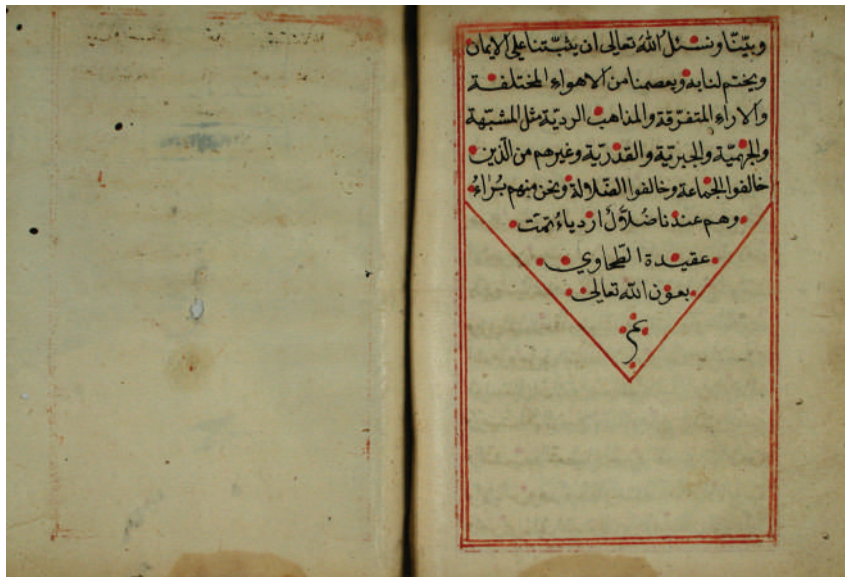 وبيّنّا ونسئل اللّه تعالى ان يثبّتنا على الايمان
ويختم لنا به ويعصمنا من الاهواء المختلفة
والاراء المتفرّقة والمذاهب الرديّة مثل المشبّهة
والجهميّة والجبريّة والقدريّة وغيرهم من الّذين
خالفوا الجماعة وخالفوا الضّلالة ونحن منهم بُرٰاءُ
وهم عندنا ضُلّالٌ اردياءُ تمّت
عقيدة الطّحاوي
بعون اللّه تعالى
تم